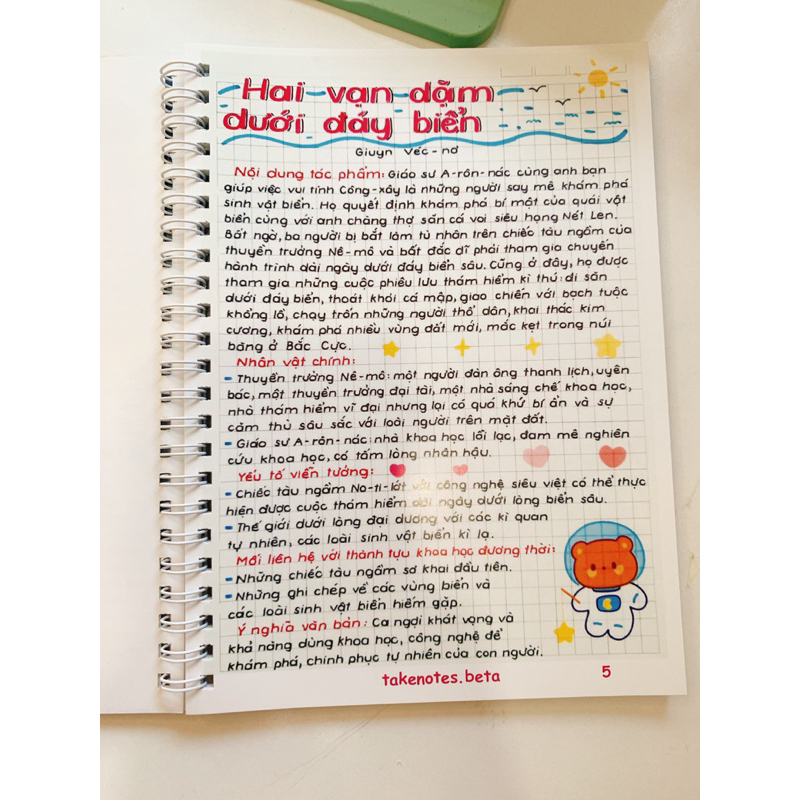 Hai vạn dặm
dưới đáy biển
Giuyn Véc-nơ
Nội dung tác phẩm: Giáo sư A-rôn-nác cùng anh bạn
giúp việc vui tính Công-xây là những người say mê khám phá
sinh vật biển. Họ quyết định khám phá bí mật của quái vật
biển cùng với anh chàng thợ săn cá voi siêu hạng Nét Len.
Bất ngờ, ba người bị bắt làm tù nhân trên chiếc tàu ngầm của
thuyền trưởng Nê-mô và bất đắc dĩ phải tham gia chuyến
hành trình dài ngày dưới đáy biển sâu. Cũng ở đây, họ được
tham gia những cuộc phiêu lưu thám hiểm kì thú: đi săn
dưới đáy biển, thoát khỏi cá mập, giao chiến với bạch tuộc
khổng lồ, chạy trốn những người thổ dân, khai thác kim
cương, khám phá nhiều vùng đất mới, mắc kẹt trong núi
băng ở Bắc Cực.
Nhân vật chính:
- Thuyền trưởng Nê-mô: một người đàn ông thanh lịch, uyên
bác, một thuyền trưởng đại tài, một nhà sáng chế khoa học,
nhà thám hiểm vĩ đại nhưng lại có quá khứ bí ẩn và sự
căm thù sâu sắc với loài người trên mặt đất.
- Giáo sư A-rôn-nác: nhà khoa học lỗi lạc, đam mê nghiên
cứu khoa học, có tấm lòng nhân hậu.
Yếu tố viễn tưởng:
- Chiếc tàu ngầm No-ti-lớt với công nghệ siêu việt có thể thực
hiện được cuộc thám hiểm dài ngày dưới lòng biển sâu.
- Thế giới dưới lòng đại dương với các kì quan
tự nhiên, các loài sinh vật biển kì lạ.
Mối liên hệ với thành tựu khoa học đương thời:
- Những chiếc tàu ngầm sơ khai đầu tiên.
- Những ghi chép về các vùng biển và
các loài sinh vật biển hiếm gặp.
Ý nghĩa văn bản: Ca ngợi khát vọng và
khả năng dùng khoa học, công nghệ để
khám phá, chinh phục tự nhiên của con người.
takenotes.beta
5